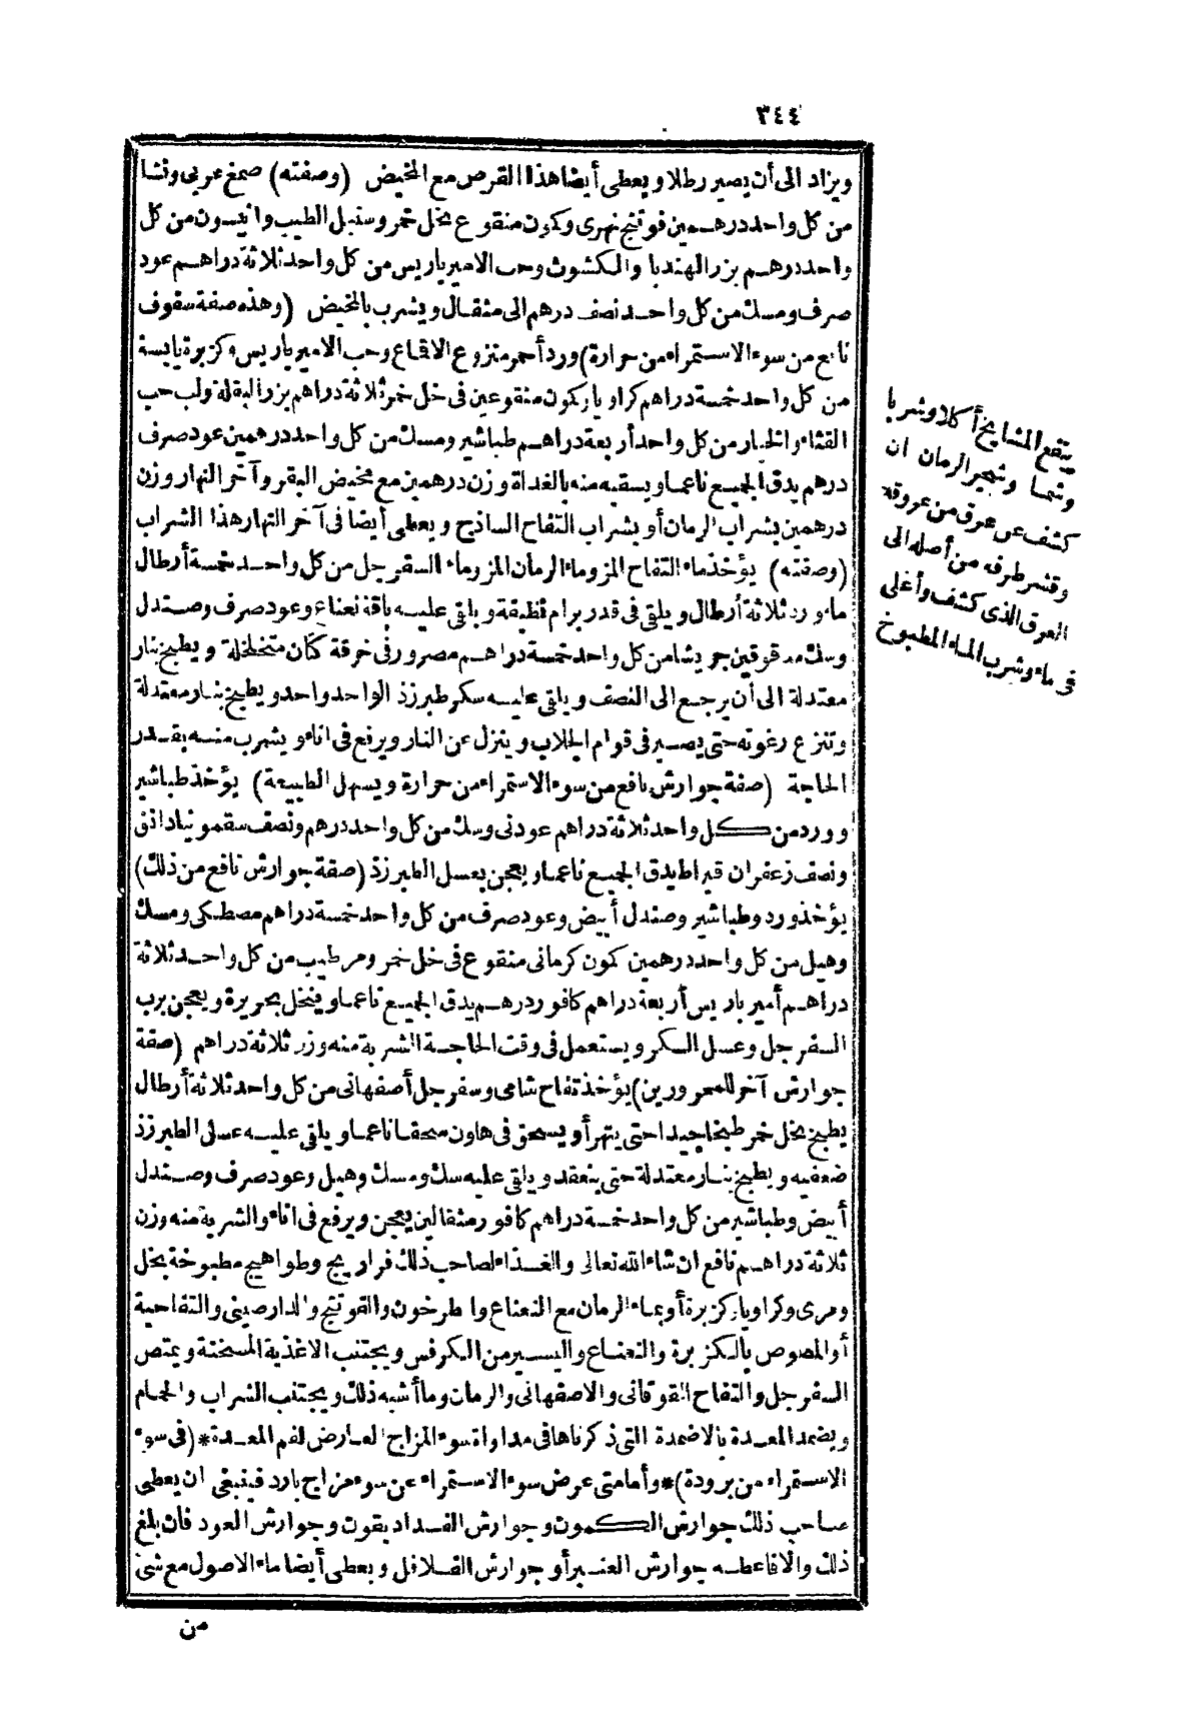 ٣٤٤
ويزاد الى أن يصير رطلا ويعطى أيضا هذا القرص مع المخيض (وصفته) صمغ عربى ونشا
من كل واحد درهمين فوتنج نهرى وكمون منقوع بخل خمر وسنبل الطيب وانيسون من كل
واحد درهم بزر الهندبا والكشوث وحب الامير باريس من كل واحد ثلاثة دراهم عود
صرف ومسك من كل واحد نصف درهم الى مثقال ويشرب بالمخيض (وهذه صفة سفوف
نافع من سوء الاستمراء من حرارة) ورد أحمر منزوع الاقماع وحب الامير باريس وكزبرة يابسة
من كل واحد خمسة دراهم كراويا وكمون منقوعين فى خل خمر ثلاثة دراهم بزر البقلة ولب حب
القثاء والخيار من كل واحد أربعة دراهم طباشير ومسك من كل واحد درهمين عود صرف
درهم يدق الجميع ناعما ويسقيه منه بالغداة وزن درهمين مع مخيض البقر وآخر النهار وزن
درهمين بشراب الرمان أو بشراب التفاح الساذج ويعطى أيضا فى آخر النهار هذا الشراب
(وصفته) يؤخذ ماء التفاح المز وماء الرمان المز وماء السفرجل من كل واحد خمسة أرطال
ماء ورد ثلاثة أرطال ويلقى فى قدر برام نظيفة ويلقى عليه باقة نعناع وعود صرف وصندل
وسك مدقوقين جريشا من كل واحد خمسة دراهم مصرور فى خرقة كتان متخلخلة ويطبخ بنار
معتدلة الى أن يرجع الى النصف ويلقى عليه سكر طبرزذ الواحد واحد ويطبخ بنار معتدلة
وتنزع رغوته حتى يصير فى قوام الجلاب وينزل عن النار ويرفع فى اناء ويشرب منه بقدر
الحاجة (صفة جوارش نافع من سوء الاستمراء من حرارة ويسهل الطبيعة) يؤخذ طباشير
وورد من كل واحد ثلاثة دراهم عود نى وسك من كل واحد درهم ونصف سقمونيا دانق
ونصف زعفران قيراط يدق الجميع ناعما ويعجن بعسل الطبرزذ (صفة جوارش نافع من ذلك)
يؤخذ ورد وطباشير وصندل أبيض وعود صرف من كل واحد خمسة دراهم مصطكى ومسك
وهيل من كل واحد درهمين كمون كرمانى منقوع فى خل خمر ومر طيب من كل واحد ثلاثة
دراهم أمير باريس أربعة دراهم كافور درهم يدق الجميع ناعما وينخل بحريرة ويعجن برب
السفرجل وعسل السكر ويستعمل فى وقت الحاجة الشربة منه وزن ثلاثة دراهم (صفة
جوارش آخر للمحرورين) يؤخذ تفاح شامى وسفرجل أصفهانى من كل واحد ثلاثة أرطال
يطبخ بخل خمر طبخا جيدا حتى يتهرأ ويسحق فى هاون سحقا ناعما ويلقى عليه عسل الطبرزذ
ضعفيه ويطبخ بنار معتدلة حتى ينعقد ويلقى عليه سك ومسك وهيل وعود صرف وصندل
أبيض وطباشير من كل واحد خمسة دراهم كافور مثقالين يعجن ويرفع فى اناء والشربة منه وزن
ثلاثة دراهم نافع ان شاء الله تعالى والغذاء لصاحب ذلك فراريج وطواهيج مطبوخة بخل
ومرى وكراويا وكزبرة أو بماء الرمان مع النعناع والطرخون والفوتنج والدارصينى والتفاحية
أو المصوص بالكزبرة والنعناع واليسير من الكرفس ويجتنب الاغذية المسخنة ويمتص
السفرجل والتفاح القوقانى والاصفهانى والرمان وما أشبه ذلك ويجتنب الشراب والحمام
ويضمد المعدة بالاضمدة التى ذكرناها فى مداواة سوء المزاج العارض لفم المعدة *(فى سوء
الاستمراء من برودة)* وأما متى عرض سوء الاستمراء عن سوء مزاج بارد فينبغى ان يعطى
صاحب ذلك جوارش الكمون وجوارش الفنداديقون وجوارش العود فان بلغ
ذلك والا فاعطه جوارش العنبر أو جوارش الفلافل ويعطى أيضا ماء الاصول مع شئ
من
ينفع المشايخ أكلا وشربا
وشما وشجر الرمان ان
كشف عن عرق من عروقه
وقشر طرفه من أصله الى
العرق الذى كشف وأغلى
فى ماء وشرب الماء المطبوخ